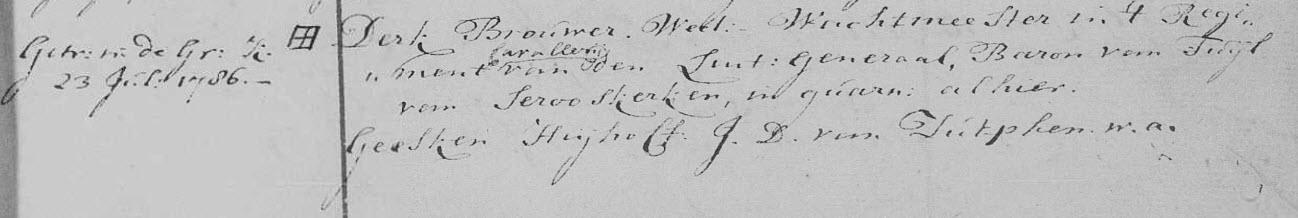 Getr: in de Gr: K:
23 Jul: 1786. –
Derk Brouwer. Wed: Wachtmeester in 't Regi„
Cavallerij
„ment van den Luit: Generaal, Baron van Tuÿl
van Serooskerken, in guarn: alhier.
Geesken Huÿhoff. J. D. van Zutphen. w. a.